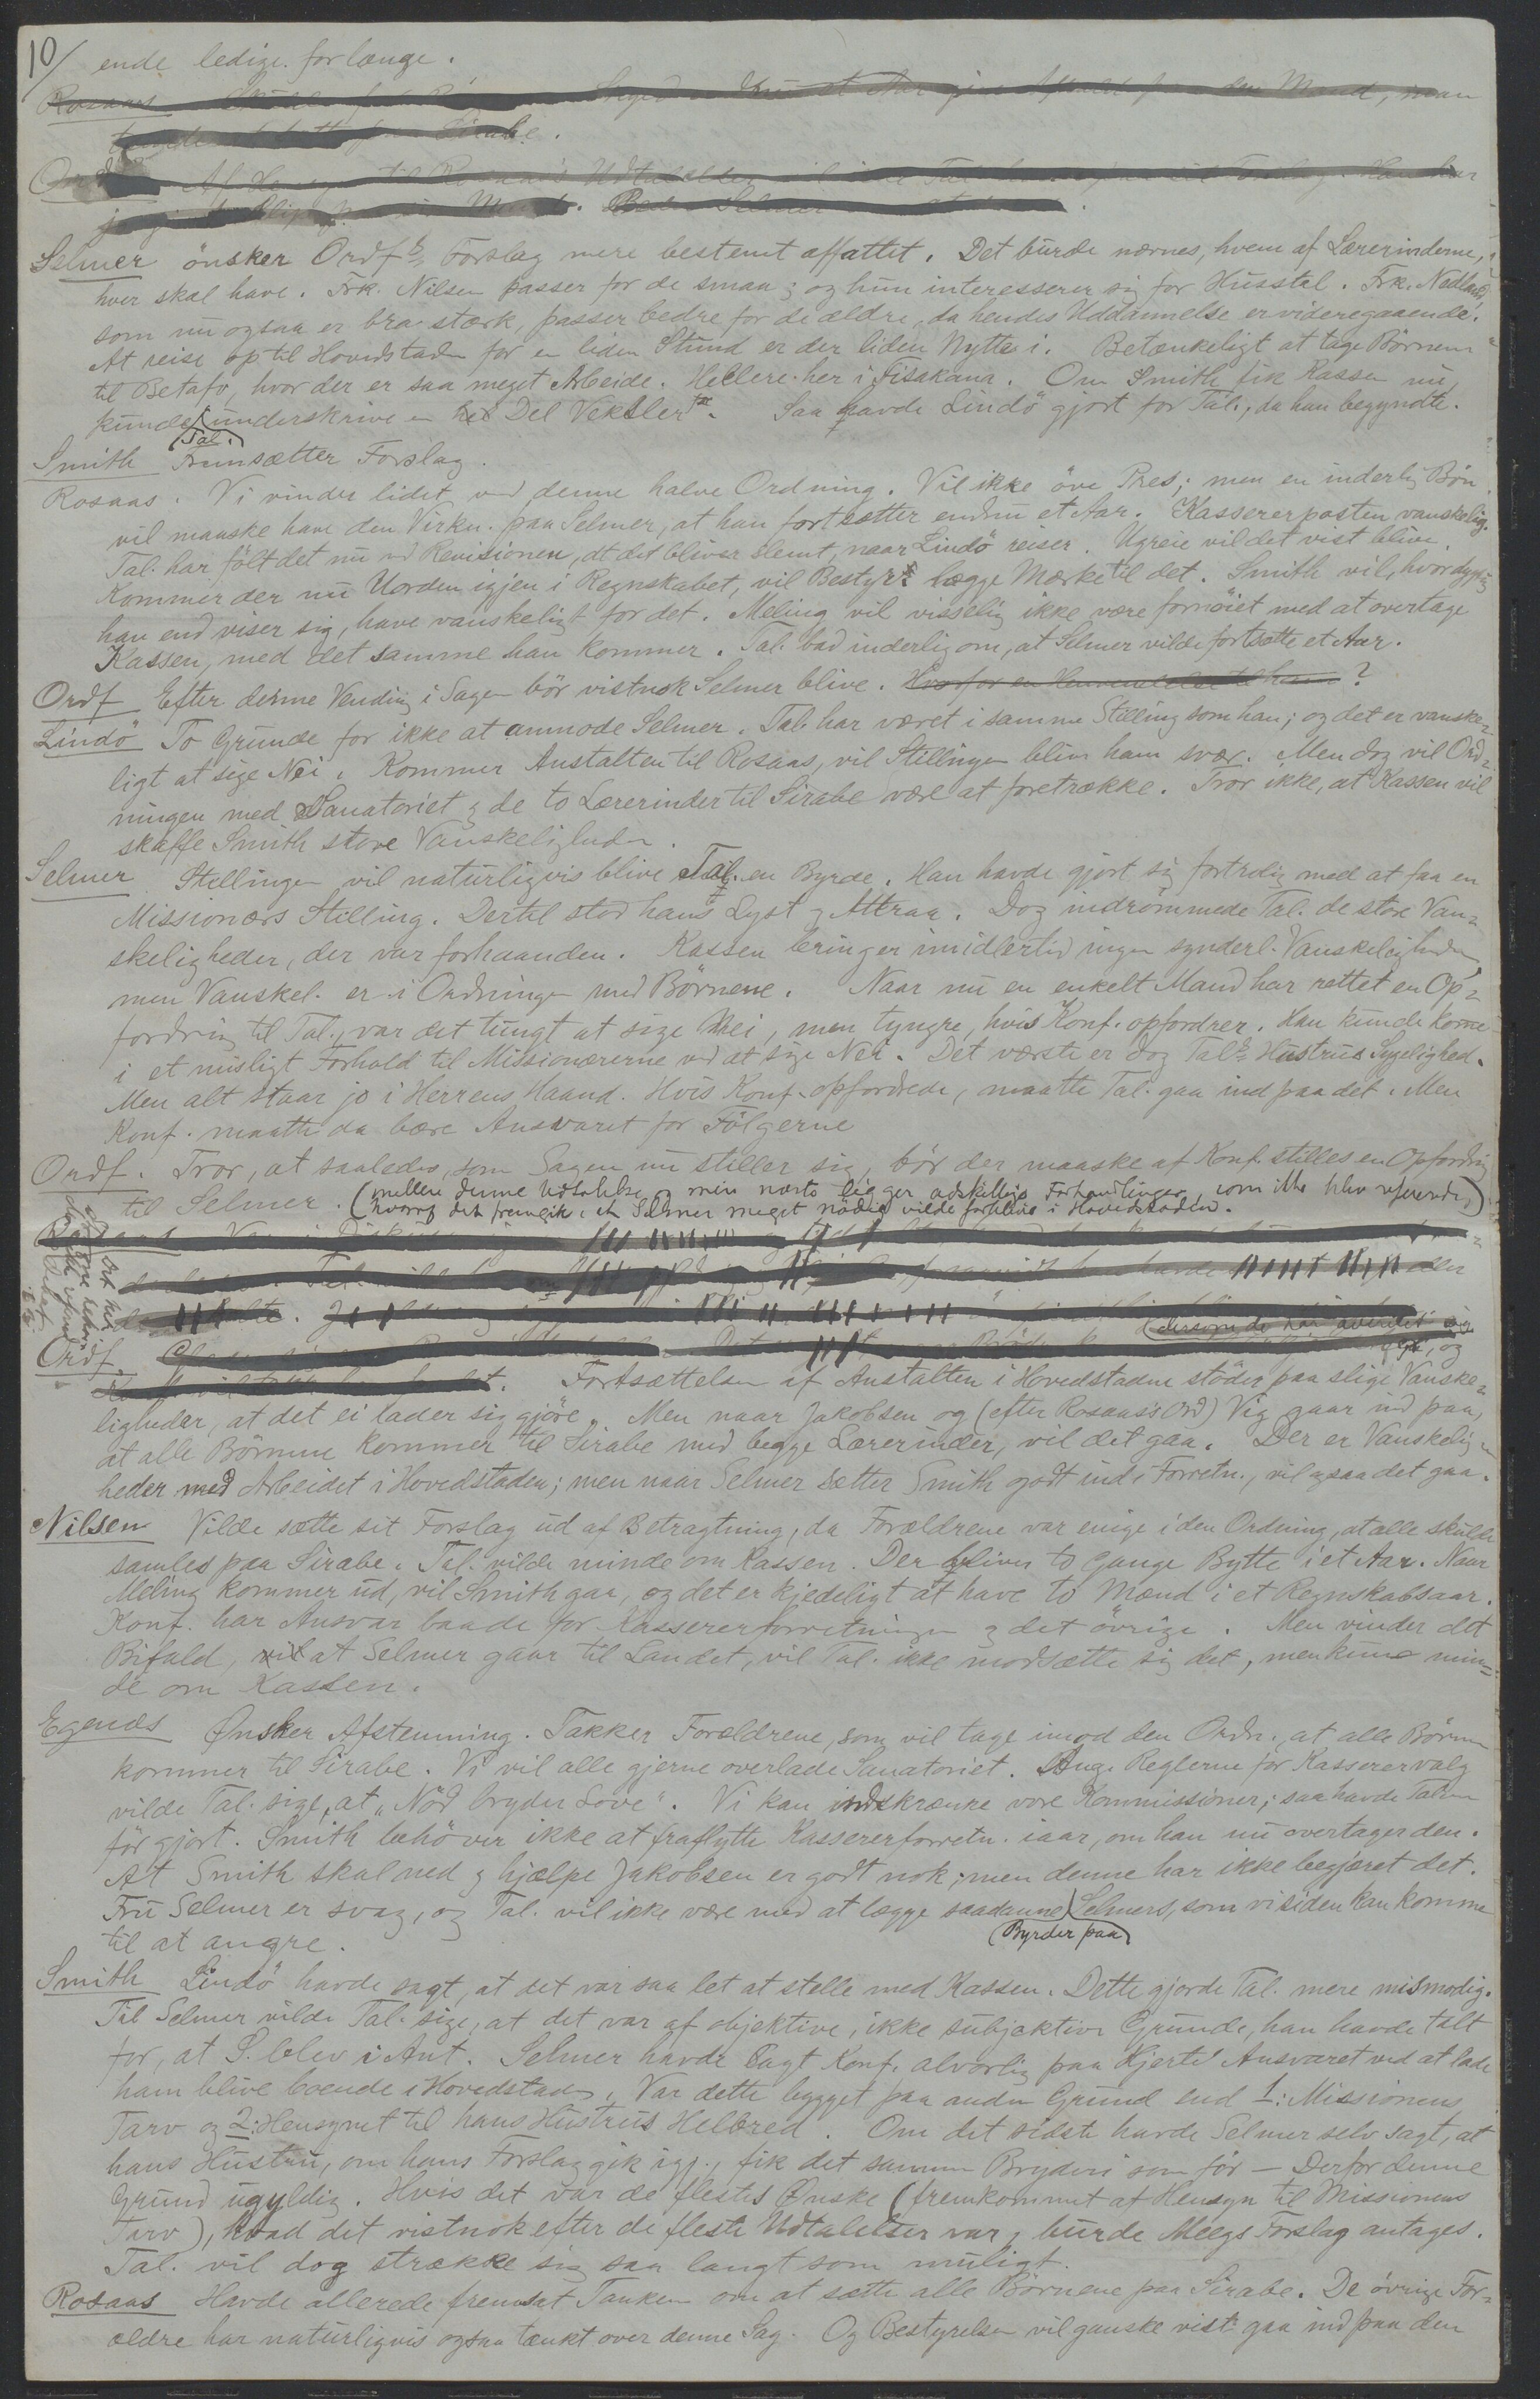 10/ ende ledige for længe.
Rosaas den Mand, man
Sirabe.
Ordf. Af Rosaas's Udtalelse Han har
Selmer
Selmer önsker Ordf.s Forslag mere bestemt affattet. Det burde nævnes, hvem af Lærerinderne,
hver skal have. Frk. Nilsen passer for de smaa; og hun interesserer sig for Husstel. Frk. Nedland,
som nu ogsaa er bra stærk, passer bedre for de ældre, da hendes Uddannelse er videregaaende.
At reise op til Hovedstaden for en liden Stund er der liden Nytte i. Betænkeligt at tage Börnene
til Betafo, hvor der er saa meget Arbeide. Hellere her i Fisakana. Om Smith fik Kassen nu,
kunde (Tal.) underskrive en hel Del Veksler. Saa havde Lindö gjort for Tal., da han begyndte.
Smith Fremsætter Forslag.
Rosaas. Vi vinder lidet ved denne halve Ordning. Vil ikke öve Pres; men en inderlig Bön
vil maaske have den Virkn. paa Selmer, at han fortsætter endnu et Aar. Kassererposten vanskelig.
Tal. har fölt det nu ved Revisionen, at det bliver slemt, naar Lindö reiser. Ugreie vil det vist blive.
Kommer der nu Uorden igjen i Regnskabet, vil Bestyr. lægge Mærke til det. Smith vil, hvor dygtig
han end viser sig, have vanskeligt for det. Meling vil visselig ikke være fornöiet med at overtage
Kassen, med det samme han kommer. Tal. bad inderlig om, at Selmer vilde fortsætte et Aar.
Ordf Efter denne Vending i Sagen bör vistnok Selmer blive. Hvorfor en Henvendelse til ham?
Lindö To Grunde for ikke at anmode Selmer. Tal. har været i samme Stilling som han; og det er vanske-
ligt at sige Nei. Kommer Anstalten til Rosaas, vil Stillingen blive ham svær. Men dog vil Ord-
ningen med Sanatoriet og de to Lærerinder til Sirabe være at foretrække. Tror ikke, at Kassen vil
skaffe Smith store Vanskeligheder.
Selmer. Stillingen vil naturligvis blive Tal. en Byrde. Han havde gjort sig fortrolig med at faa en
Missionærs Stilling. Dertil stod hans Lyst og Attraa. Dog indrömmede Tal. de store Van-
skeligheder, der var forhaanden. Kassen bringer imidlertid ingen synderl. Vanskeligheder,
men Vanskel. er i Ordningen med Börnene. Naar nu en enkelt Mand har rettet en Op-
fordring til Tal., var det tungt at sige Nei, men tyngre, hvis Konf. opfordrer. Han kunde komme
i et misligt Forhold til Missionærerne ved at sige Nei. Det værste er dog Tal.s Hustrus Sygelighed.
Men alt staar jo i Herrens Haand. Hvis Konf. opfordrede, maatte Tal. gaa ind paa det. Men
Konf. maatte da bære Ansvaret for Fölgerne
Ordf. Tror, at saaledes, som Sagen nu stiller sig, bör der maaske af Konf. stilles en Opfordring
til Selmer. (mellem denne Udtalelse og min næste ligger adskillige Forhandlinger, som ikke blev refererede,
hvoraf det fremgik, at Selmer meget nödig vilde forblive i Hovedstaden.)
Rosaas
Tal.
Ordf. (dersom de har
Fortsættelsen af Anstalten i Hovedstaden stöder paa slige Vanske-
ligheder, at det ei lader sig gjöre. Men naar Jakobsen og (efter Rosaas's Ord) Vig gaar ind paa,
at alle Börnene kommer til Sirabe med begge Lærerinder, vil det gaa. Der er Vanskelig-
heder med Arbeidet i Hovedstaden; men naar Selmer sætter Smith godt ind i Forretn., vil ogsaa det gaa.
Nilsen Vilde sætte sit Forslag ud af Betragtning, da Forældrene var enige i den Ordning, at alle skulde
samles paa Sirabe. Tal. vilde minde om Kassen. Der bliver to Gange Bytte i et Aar. Naar
Meling kommer ud, vil Smith gaa, og det er kjedeligt at have to Mænd i et Regnskabsaar.
Konf. har Ansvar baade for Kassererforretningen og det övrige. Men vinder det
Bifald, at Selmer gaar til Landet, vil Tal. ikke modsætte sig det, men kun min-
de om Kassen.
Egenæs Ønsker Afstemning. Takker Forældrene, som vil tage imod den Ordn., at alle Börnene
kommer til Sirabe. Vi vil alle gjerne overlade Sanatoriet. Ang. Reglerne for Kasserervalg
vilde Tal. sige, at "Nöd bryder Love". Vi kan indskrænke vore Kommissioner; saa havde Talen
för gjort. Smith behöver ikke at fraflytte Kassererforretn. iaar, om han nu overtager den.
At Smith skal ned og hjælpe Jakobsen er godt nok; men denne har ikke begjæret det.
Fru Selmer er svag, og Tal. vil ikke være med at lægge saadanne (Byrder paa) Selmers, som vi siden kan komme
til at angre.
Smith Lindö havde sagt, at det var saa let at stelle med Kassen. Dette gjorde Tal. mere mismodig.
Til Selmer vilde Tal. sige, at det var af objektive, ikke subjektive Grunde, han havde talt
for, at S. blev i Ant. Selmer havde lagt Konf. alvorlig paa Hjerte Ansvaret ved at lade
ham blive boende i Hovedstaden. Var dette bygget paa anden Grund end 1: Missionens
Tarv og 2: Hensynet til hans Hustrus Helbred. Om det sidste havde Selmer selv sagt, at
hans Hustru, om hans Forslag gik igj., fik det samme Bryderi som för — Derfor denne
Grund ugyldig. Hvis det var de flestes Ønske (fremkommet af Hensyn til Missionens
Tarv), hvad det vistnok efter de fleste Udtalelser var, burde Meegs Forslag antages.
Tal. vil dog strække sig saa langt som muligt.
Rosaas Havde allerede fremsat Tanken om at sætte alle Börnene paa Sirabe. De övrige For-
ældre har naturligvis ogsaa tænkt over denne Sag. Og Bestyrelsen vil ganske vist gaa ind paa den